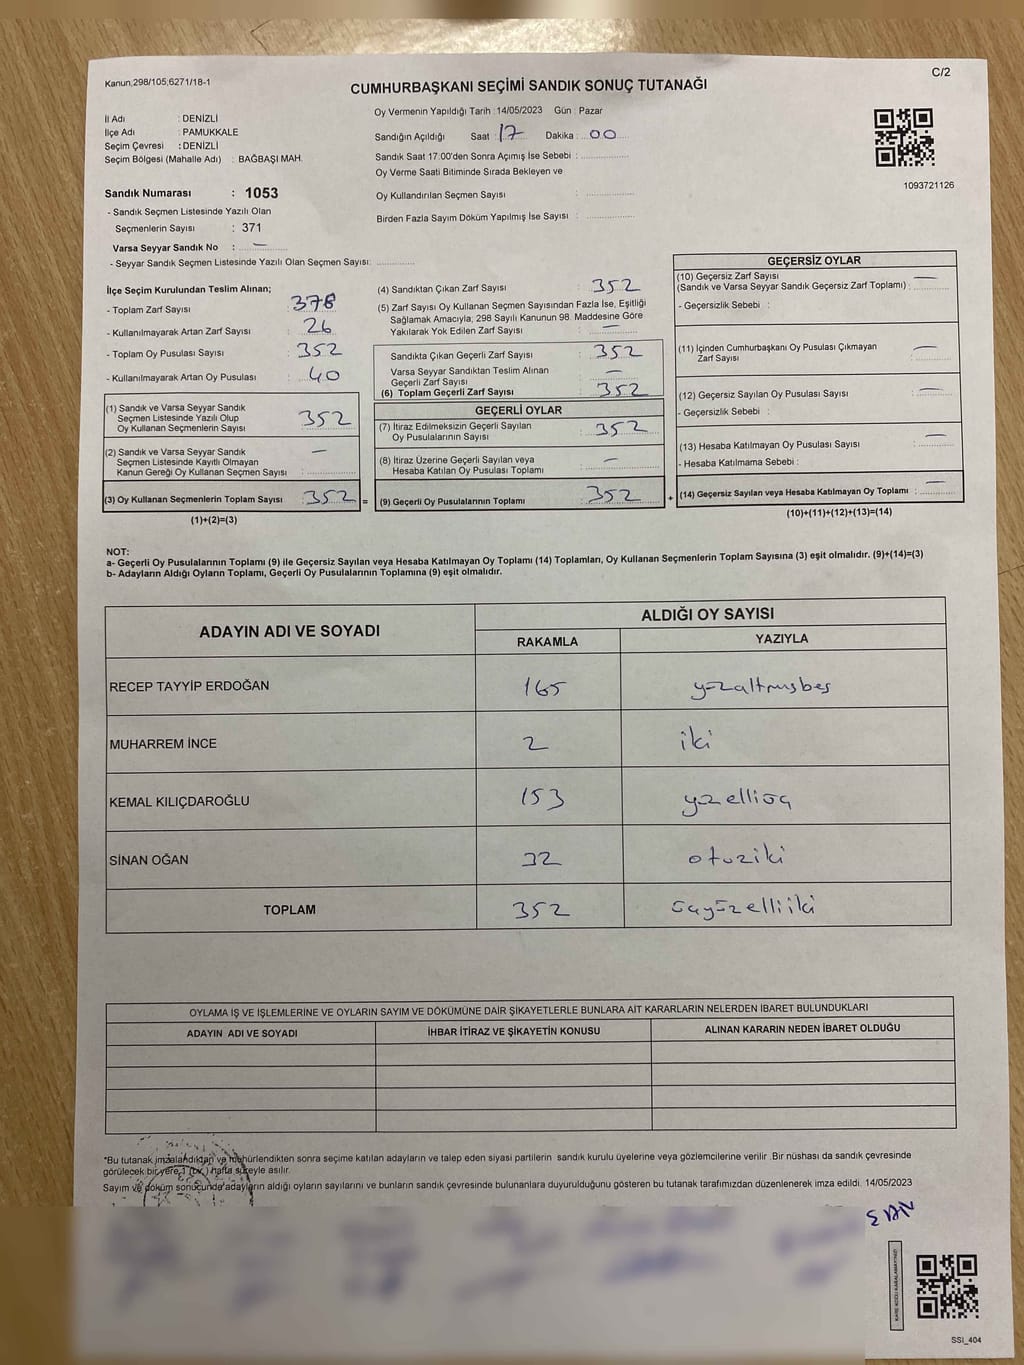 Kanun,298/105,6271/18-1
C/2
CUMHURBAŞKANI SEÇİMİ SANDIK SONUÇ TUTANAĞI
İl Adı : DENİZLİ
İlçe Adı : PAMUKKALE
Seçim Çevresi : DENİZLİ
Seçim Bölgesi (Mahalle Adı) : BAĞBAŞI MAH.
Oy Vermenin Yapıldığı Tarih : 14/05/2023 Gün : Pazar
Sandığın Açıldığı Saat : 17 Dakika : 00
Sandık Saat 17:00'den Sonra Açımış İse Sebebi :
Oy Verme Saati Bitiminde Sırada Bekleyen ve
Oy Kullandırılan Seçmen Sayısı :
Birden Fazla Sayım Döküm Yapılmış İse Sayısı :
1093721126
Sandık Numarası : 1053
- Sandık Seçmen Listesinde Yazılı Olan
Seçmenlerin Sayısı : 371
Varsa Seyyar Sandık No : —
- Seyyar Sandık Seçmen Listesinde Yazılı Olan Seçmen Sayısı:
İlçe Seçim Kurulundan Teslim Alınan;
- Toplam Zarf Sayısı : 378
- Kullanılmayarak Artan Zarf Sayısı : 26
- Toplam Oy Pusulası Sayısı : 352
- Kullanılmayarak Artan Oy Pusulası : 40
(1) Sandık ve Varsa Seyyar Sandık
Seçmen Listesinde Yazılı Olup
Oy Kullanan Seçmenlerin Sayısı : 352
(2) Sandık ve Varsa Seyyar Sandık
Seçmen Listesinde Kayıtlı Olmayan
Kanun Gereği Oy Kullanan Seçmen Sayısı : —
(3) Oy Kullanan Seçmenlerin Toplam Sayısı : 352 =
(1)+(2)=(3)
(4) Sandıktan Çıkan Zarf Sayısı : 352
(5) Zarf Sayısı Oy Kullanan Seçmen Sayısından Fazla İse, Eşitliği
Sağlamak Amacıyla; 298 Sayılı Kanunun 98. Maddesine Göre
Yakılarak Yok Edilen Zarf Sayısı : —
Sandıkta Çıkan Geçerli Zarf Sayısı : 352
Varsa Seyyar Sandıktan Teslim Alınan
Geçerli Zarf Sayısı : —
(6) Toplam Geçerli Zarf Sayısı : 352
GEÇERLİ OYLAR
(7) İtiraz Edilmeksizin Geçerli Sayılan
Oy Pusulalarının Sayısı : 352
(8) İtiraz Üzerine Geçerli Sayılan veya
Hesaba Katılan Oy Pusulası Toplamı : —
(9) Geçerli Oy Pusulalarının Toplamı : 352 +
GEÇERSİZ OYLAR
(10) Geçersiz Zarf Sayısı —
(Sandık ve Varsa Seyyar Sandık Geçersiz Zarf Toplamı) :
- Geçersizlik Sebebi :
(11) İçinden Cumhurbaşkanı Oy Pusulası Çıkmayan
Zarf Sayısı : —
(12) Geçersiz Sayılan Oy Pusulası Sayısı : —
- Geçersizlik Sebebi :
(13) Hesaba Katılmayan Oy Pusulası Sayısı : —
- Hesaba Katılmama Sebebi :
(14) Geçersiz Sayılan veya Hesaba Katılmayan Oy Toplamı : —
(10)+(11)+(12)+(13)=(14)
NOT:
a- Geçerli Oy Pusulalarının Toplamı (9) ile Geçersiz Sayılan veya Hesaba Katılmayan Oy Toplamı (14) Toplamları, Oy Kullanan Seçmenlerin Toplam Sayısına (3) eşit olmalıdır. (9)+(14)=(3)
b- Adayların Aldığı Oyların Toplamı, Geçerli Oy Pusulalarının Toplamına (9) eşit olmalıdır.
ADAYIN ADI VE SOYADI
ALDIĞI OY SAYISI
RAKAMLA YAZIYLA
RECEP TAYYİP ERDOĞAN 165 yüzaltmışbeş
MUHARREM İNCE 2 iki
KEMAL KILIÇDAROĞLU 153 yüzelliüç
SİNAN OĞAN 32 otuziki
TOPLAM 352 üçyüzelliiki
OYLAMA İŞ VE İŞLEMLERİNE VE OYLARIN SAYIM VE DÖKÜMÜNE DAİR ŞİKAYETLERLE BUNLARA AİT KARARLARIN NELERDEN İBARET BULUNDUKLARI
ADAYIN ADI VE SOYADI İHBAR İTİRAZ VE ŞİKAYETİN KONUSU ALINAN KARARIN NEDEN İBARET OLDUĞU
*Bu tutanak imzalandıktan ve mühürlendikten sonra seçime katılan adayların ve talep eden siyasi partilerin sandık kurulu üyelerine veya gözlemcilerine verilir .Bir nüshası da sandık çevresinde
görülecek bir yere 1 (bir) hafta süreyle asılır.
Sayım ve döküm sonucunda adayların aldığı oyların sayılarını ve bunların sandık çevresinde bulunanlara duyurulduğunu gösteren bu tutanak tarafımızdan düzenlenerek imza edildi. 14/05/2023
KARE KODU KARALAMAYINIZ!
SSI_404